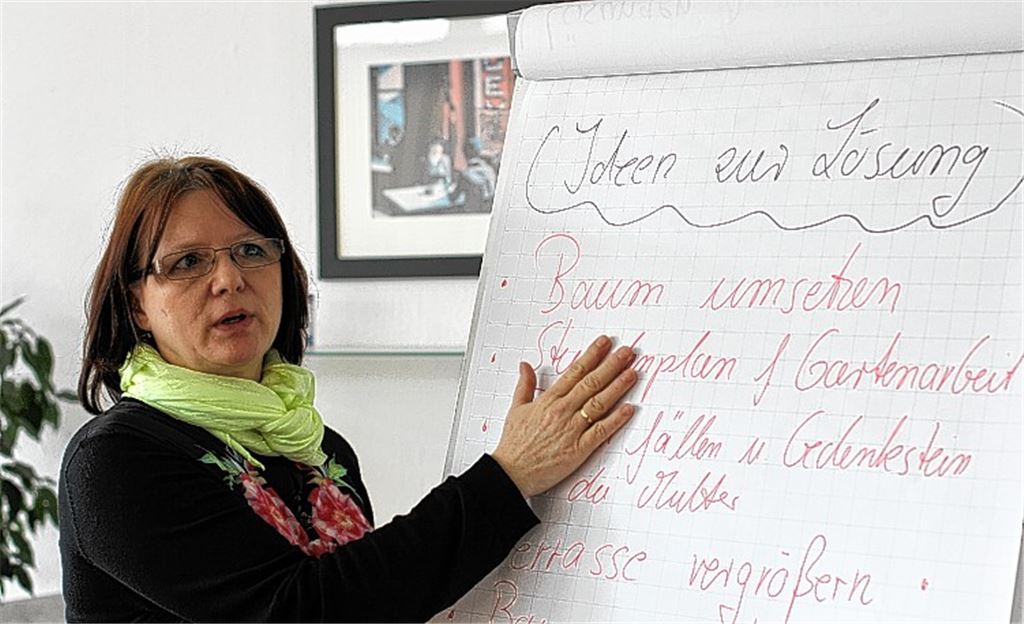 (Ideen zur Lösung)
· Baum umsetzen
· f Gartenarbeit
· fällen u Gedenkstein
die Mutter
vergrößern ·
·